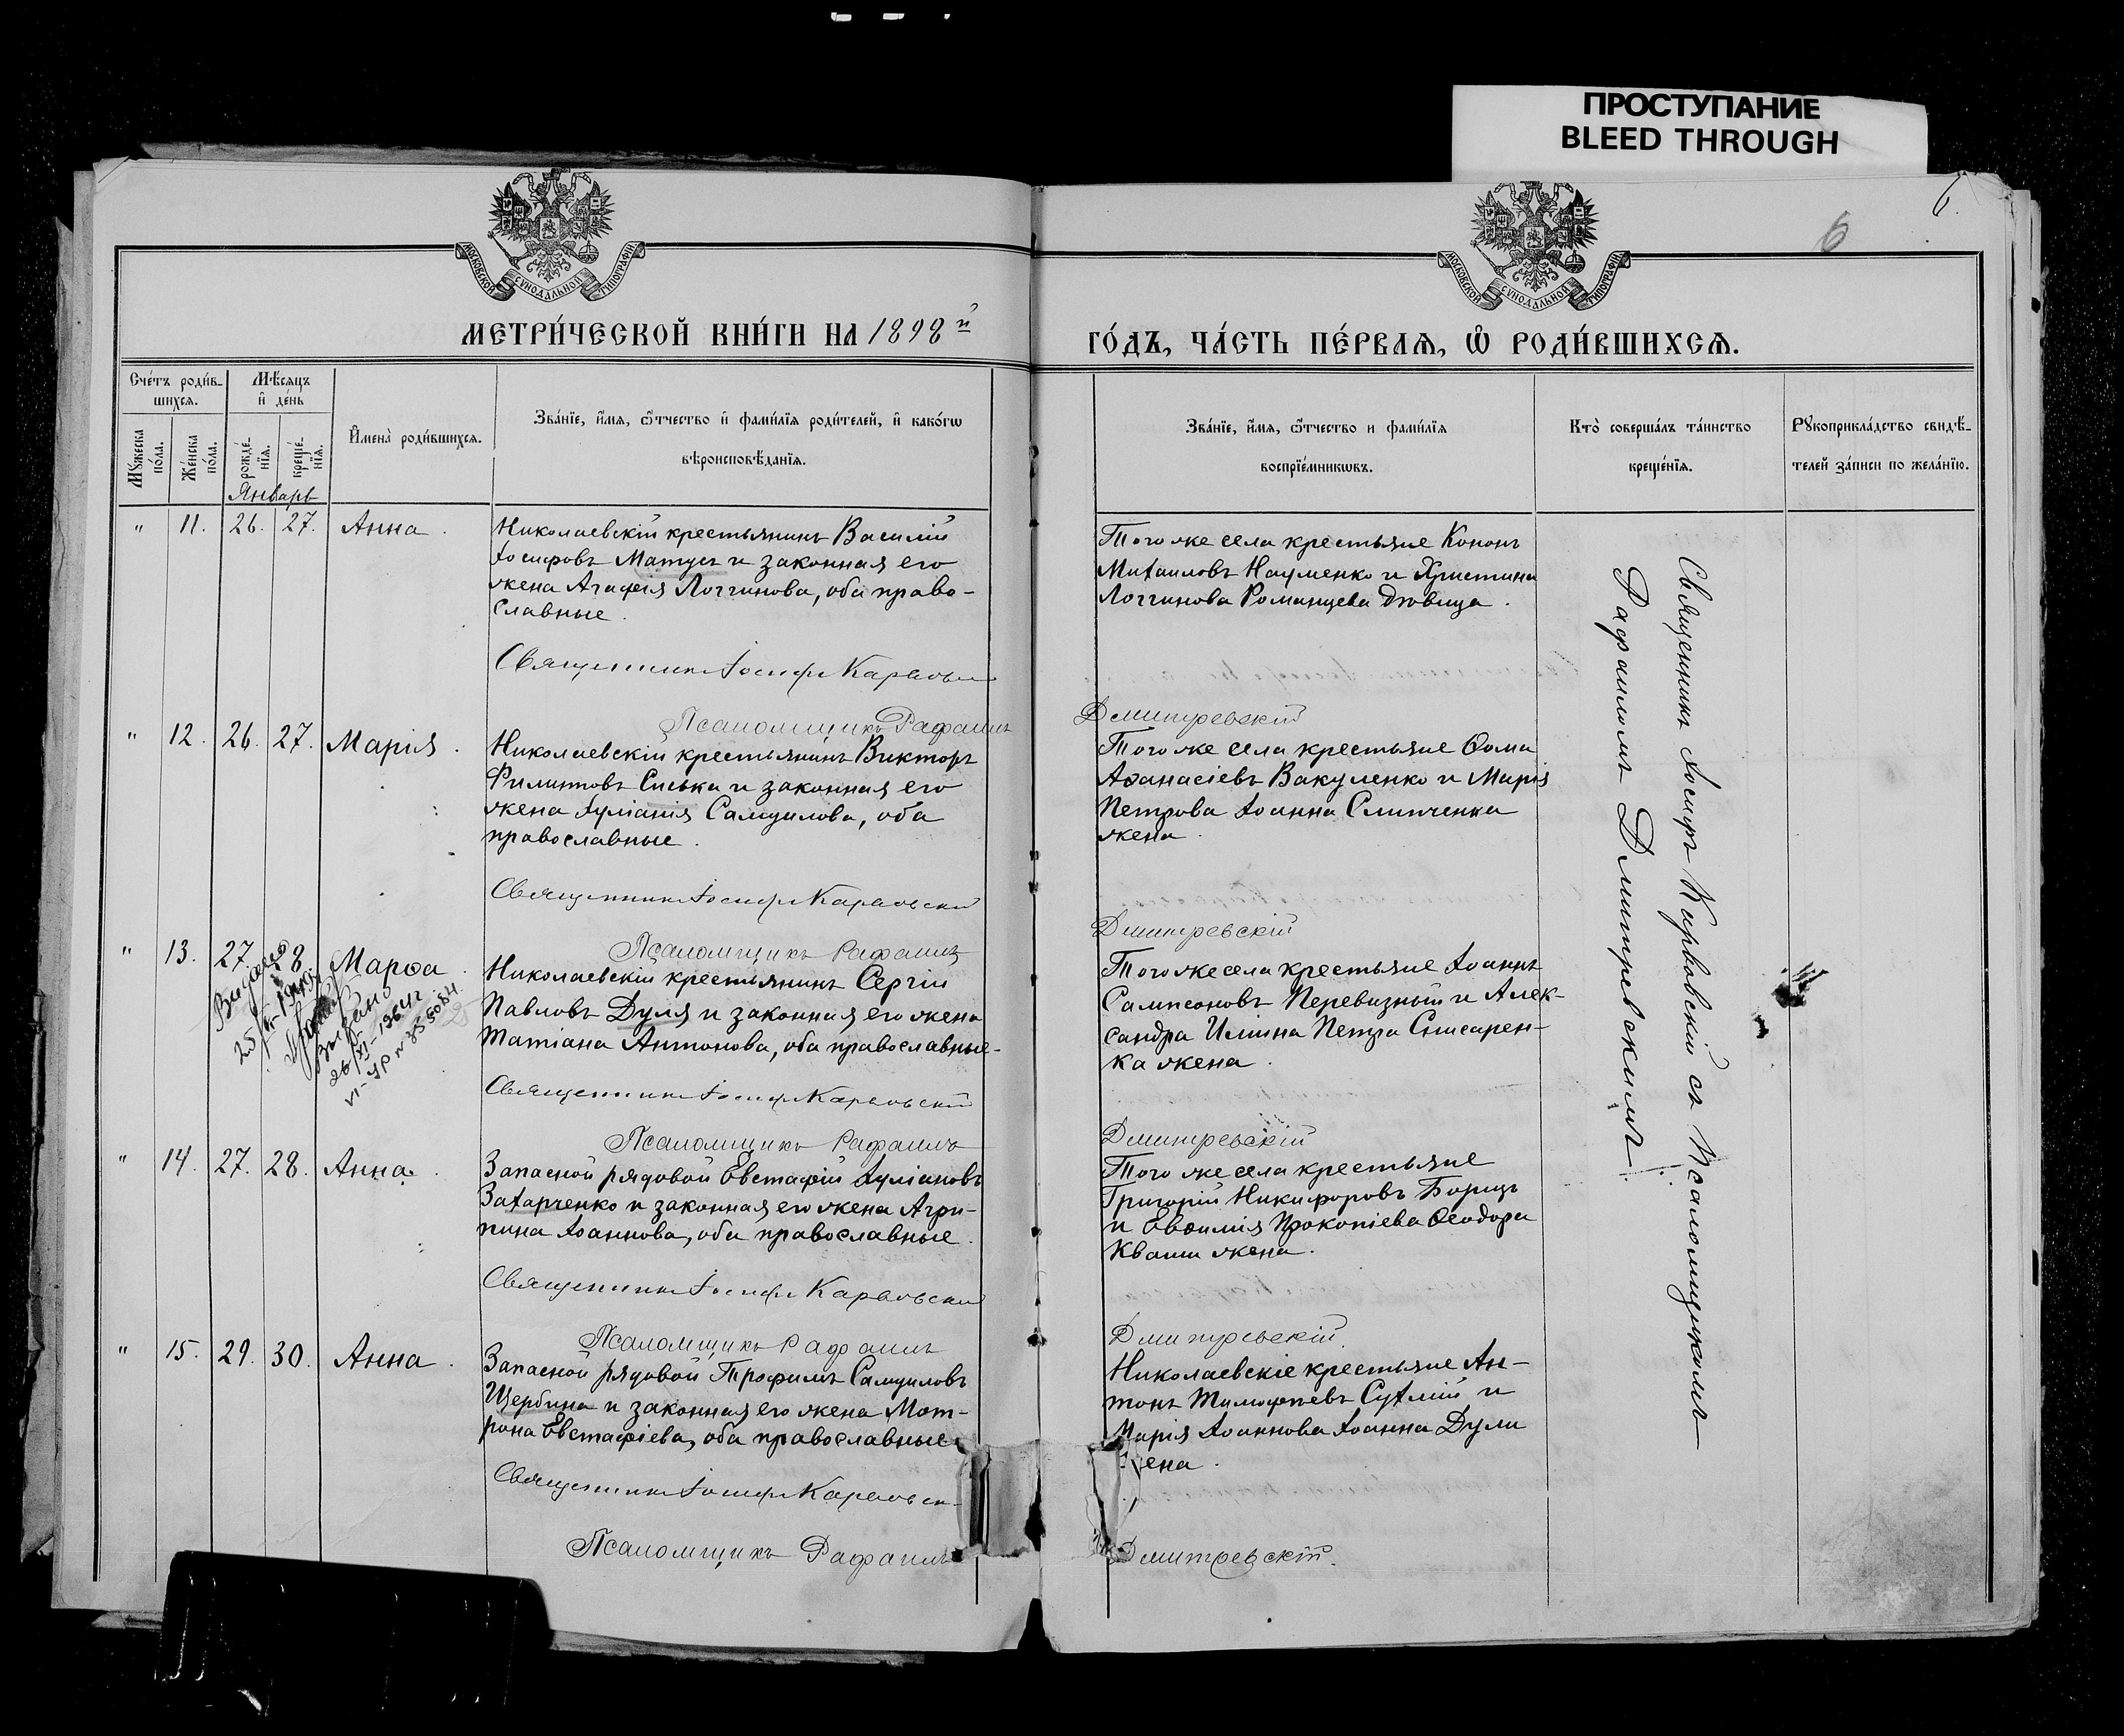 ПРОСТУПАНИЕ
BLEED THROUGH
6.
6
МОСКОВСКОЙ СѴНОДАЛЬНОЙ ТИПОГРАФІИ
МОСКОВСКОЙ СѴНОДАЛЬНОЙ ТИПОГРАФІИ
МЕТРИ́ЧЕСКОЙ КНИ́ГИ НА 1898й
ГО́ДЪ, ЧА́СТЬ ПЕ́РВАѦ, Ѽ РОДИ́ВШИХСѦ.
Сче́тъ роди́в-
шихсѧ.
Мꙋ́жеска по́ла.
Же́нска по́ла.
Мѣ́сѧцъ
и҆ де́нь
рожде́-
нїѧ.
креще́-
нїѧ.
Январь
И҆мена̀ роди́вшихсѧ.
Зва́нїе, и҆́мѧ, ѻ҆́тчество и҆ фами́лїѧ роди́телей, и҆ како́гѡ
вѣроисповѣ́данїѧ.
Зва́нїе, и҆́мѧ, ѻ҆́тчество и фами́лїѧ
воспрїе́мникѡвъ.
Кто̀ соверша́лъ та́инство
креще́нїѧ.
Рꙋкоприкла́дство свидѣ́-
телей за́писи по жела́нїю.
" 11. 26. 27. Анна.
Николаевскій крестьянинъ Василій
Іосифовъ Матусъ и законная его
жена Агафія Логгинова, оба право-
славные.
Священникъ Іосифъ Карвовскій
Псаломщикъ Рафаилъ
Того же села крестьяне Кононъ
Михаиловъ Науменко и Христина
Логгинова Романцева дѣвица.
Дмитревскій
" 12. 26. 27. Марія.
Николаевскій крестьянинъ Викторъ
Филиповъ Сиська и законная его
жена Іуліанія Самуилова, оба
православные.
Священникъ Іосифъ Карвовскій
Псаломщикъ Рафаилъ
Того же села крестьяне Ѳома
Аѳанасіевъ Вакуленко и Марія
Петрова Іоанна Слипченка
жена.
Дмитревскій
" 13. 27. 28. Марѳа.
Видано
26/XI-1964г.
Николаевскій крестьянинъ Сергій
Павловъ Дуля и законная его жена
Татіана Антонова, оба православные.
Священникъ Іосифъ Карвовскій
Псаломщикъ Рафаилъ
Того же села крестьяне Іоаннъ
Сампсоновъ Перевизный и Алек-
сандра Илiина Петра Слисарен-
ка жена.
Дмитревскій
" 14. 27. 28. Анна.
Запасной рядовой Евстафій Іуліановъ
Захарченко и законная его жена Агри-
пина Іоаннова, оба православные.
Священникъ Іосифъ Карвовскій
Псаломщикъ Рафаилъ
Того же села крестьяне
Григорій Никифоровъ Борицъ
и Евѳимія Прокопіева Ѳеодора
Кваши жена.
Дмитревскій
" 15. 29. 30. Анна.
Запасной рядовой Трофимъ Самуиловъ
Щербина и законная его жена Мот-
рона Евстафіева, оба православные.
Священникъ Іосифъ Карвовскій
Псаломщикъ Рафаилъ
Николаевскіе крестьяне Ан-
тонъ Тимофѣевъ Сухлій и
Марія Іоаннова Іоанна Дули
жена.
Дмитревскій.
Священникъ Іосифъ Карвовскій съ Псаломщикомъ
Рафаиломъ Дмитревскимъ.